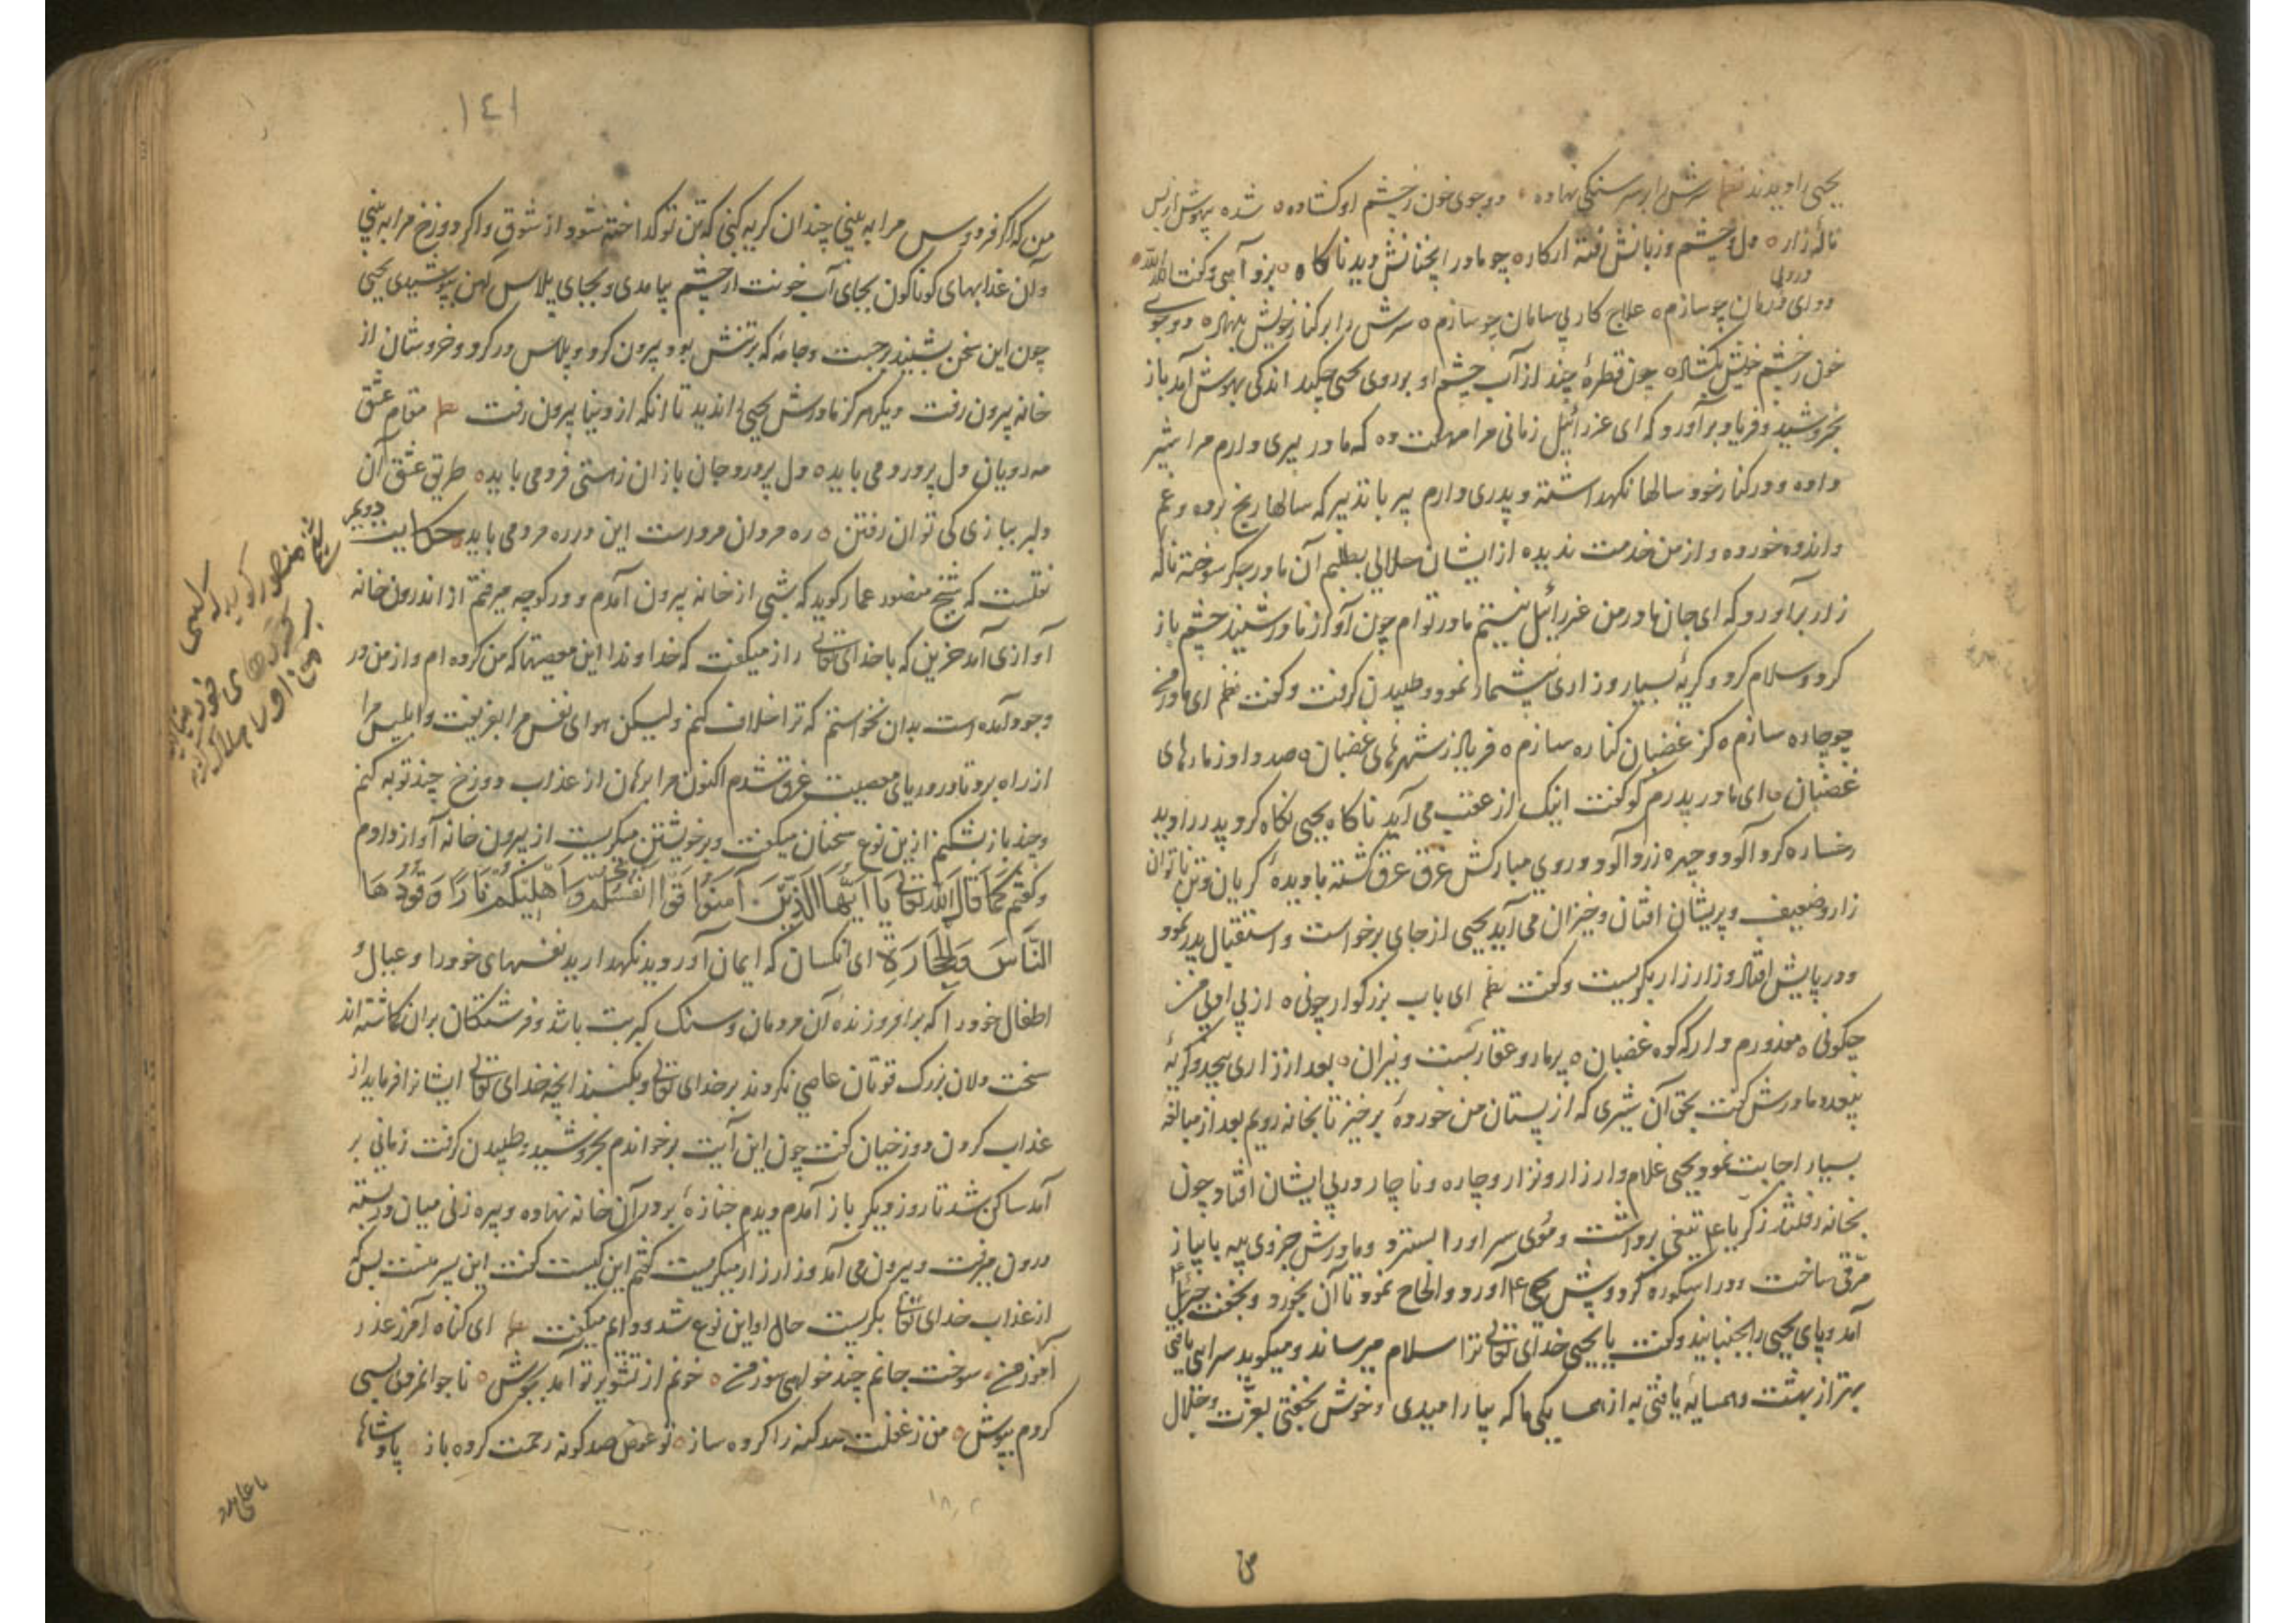 یحیی را دیدند نظم سرش را بر سر سنکی نهاده دو جوی خون ز چشم او کشاده شده بیهوش از بس
نالهٔ زار دل و چشم و زبانش رفته از کار چو مادر انچنانش دید ناکاه بزد آهی و کفت الله الله
دوای درد بی درمان چو سازم علاج کار بی سامان چو سازم سرش را بر کنار خویش بنهاد دو جوی
خون ز چشم خویش بکشاد چون قطرهٔ چند از آب چشم او بر روی یحیی چکید اندکی بهوش آمد باز
بخروشید و فریاد بر آورد که ای عزرائیل زمانی مرا مهلت ده که مادر پیری دارم مرا شیر
داده و در کنار خود سالها نکهداشته و پدری دارم پیر با تدبیر که سالها رنج برده و غم
و اندوه خورده و از من خدمت ندیده از ایشان حلالی بطلبم آن مادر جکر سوخته ناله
زار برآورد که ای جان مادر من عزرائیل نیستم مادر توام چون آواز مادر شنید چشم باز
کرد و سلام کرد و کریهٔ بسیار و زاری بیشمار نمود و طپیدن کرفت و کفت نظم ای مادر من
چو چاره سازم کز غضبان کناره سازم فریاد ز شهرهای غضبان صد داد ز مارهای
غضبان ای مادر پدرم کو کفت اینک از عقب می آید ناکاه یحیی نکاه کرد پدر را دید
رخساره کرد آلود و چهره زرد آلود و روی مبارکش عرق عرق کشته با دیدهٔ کریان و تن ناتوان
زار و ضعیف و پریشان افتان و خیزان می آید یحیی از جای برخواست و استقبال پدر نمود
و در پایش افتاد و زار زار بکریست و کفت نظم ای باب بزرکوار چونی از بی ادبی من
چکونی معذورم دار که کوه غضبان پر مار و عقاربست و نیران بعد از زاری بیحد و کریهٔ
بیعدد مادرش کفت بحق آن شیری که از پستان من خوردهٔ برخیز تا بخانه رویم بعد از مبالغه
بسیار اجابت نمود یحیی غلام وار زار و نزار و چاره و ناچار در پی ایشان افتاد چون
بخانه رفتند زکریا تیغی برداشت و موی سر او را بسترد و مادرش جزوی پیه با پیاز
مرقی ساخت و در اسکوره کرد و پیش یحیی آورد و الحاح نمود تا آن بخورد و بخفت جبرئیل
آمد و پای یحیی را بجنبانید و کفت یا یحیی خدای تعالی ترا سلام میرساند و میکوید سرایی یافتی
بهتر از بهشت و همسایهٔ یافتی به از همسایکی ما که بیارامیدی و خوش بخفتی بعزت و جلال
من
۱٤۱
من که اکر فردوس مرا به بینی چندان کریه کنی که تن تو کداخته شود از شوق و اکر دوزخ مرا به بینی
و آن عذابهای کوناکون بجای آب خونت از چشم بیامدی و بجای پلاس آهن پوشیدی یحیی
چون این سخن بشنید برجست و جامهٔ که بر تنش بود بیرون کرد و پلاس در بر کرد و خروشان از
خانه بیرون رفت و دیکر هرکز مادرش یحیی را ندید تا انکه از دنیا بیرون رفت نظم مقام عشق
مه رویان دل پر درد می باید دل پر درد و جان بازان ز هستی فرد می باید طریق عشق آن
دلبر ببازی کی توان رفتن ره مردان مردست این درره مرد می باید حکایت دویم
نقلست که شیخ منصور عمار کوید که شبی از خانه بیرون آمدم و در کوچه میرفتم از اندرون خانه
آوازی آمد حزین که با خدای تعالی راز میکفت که خداوندا این معصیتها که من کرده ام و از من در
وجود آمده است بدان نخواستم که ترا خلاف کنم ولیکن هوای نفس مرا بفریفت و ابلیس مرا
از راه برد تا در دریای معصیت غرق شدم اکنون مرا برهان از عذاب دوزخ چند توبه کنم
و چند باز بشکنم ازین نوع سخنان میکفت و بر خویشتن میکریست از بیرون خانه آواز دادم
و کفتم کما قال الله تعالی یا ایها الذین آمنوا قوا انفسکم و اهلیکم نارا وقودها
الناس والحجارة ای انکسان که ایمان آوردید نکهدارید نفسهای خود را و عیال و
اطفال خود را که برافروزندهٔ آن مردمان و سنک کبریت باشد و فرشتکان بران کماشته اند
سخت دلان بزرک قوتان عاصی نکردند بر خدای تعالی و بکنند انچه خدای تعالی ایشانرا فرماید از
عذاب کردن دوزخیان کفت چون این آیت برخواندم بخروشید و طپیدن کرفت زمانی بر
آمد ساکن شد تا روز دیکر باز آمدم دیدم جنازهٔ بر در آن خانه نهاده و پیره زنی میان در بسته
درون میرفت و بیرون می آمد و زار زار میکریست کفتم این کیست کفت این پسر منست بس که
از عذاب خدای تعالی بکریست حال او این نوع شد و دایم میکفت نظم ای کناه آمرز عذر
آموز من سوخت جانم چند خواهی سوز من خونم از تشویر تو آمد بجوش ناجوانمردی بسی
کردم بپوش من ز غفلت صد کنه را کرده ساز تو عوض صد کونه رحمت کرده باز پادشاها
شیخ منصور کوید که کسی
یا علی مدد